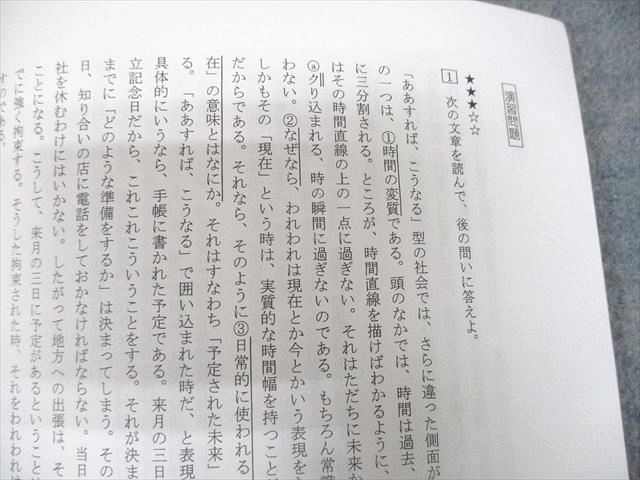 演習問題
★★★☆☆
1 次の文章を読んで、後の問いに答えよ。
「ああすれば、こうなる」型の社会では、さらに違った側面が
の一つは、①時間の変質である。頭のなかでは、時間は過去、
に三分割される。ところが、時間直線を描けばわかるように、
はその時間直線の上の一点に過ぎない。それはただちに未来か
ⓐクり込まれる、時の瞬間に過ぎないのである。もちろん常識
わない。②なぜなら、われわれは現在とか今とかいう表現を
しかもその「現在」という時は、実質的な時間幅を持つこと
だからである。それなら、そのように③日常的に使われる
在」の意味とはなにか。それはすなわち「予定された未来」
る。「ああすれば、こうなる」で囲い込まれた時だ、と表現
具体的にいうなら、手帳に書かれた予定である。来月の三日
立記念日だから、これこれこういうことをする。それが決ま
までに「どのような準備をするか」は決まってしまう。その
日、知り合いの店に電話をしておかなければならない。当日
社を休むわけにはいかない。したがって地方への出張は、そ
ことになる。こうして、来月の三日に予定があるということ
でに強く拘束する。そうした拘束された時、それをわれわれは
すのである。